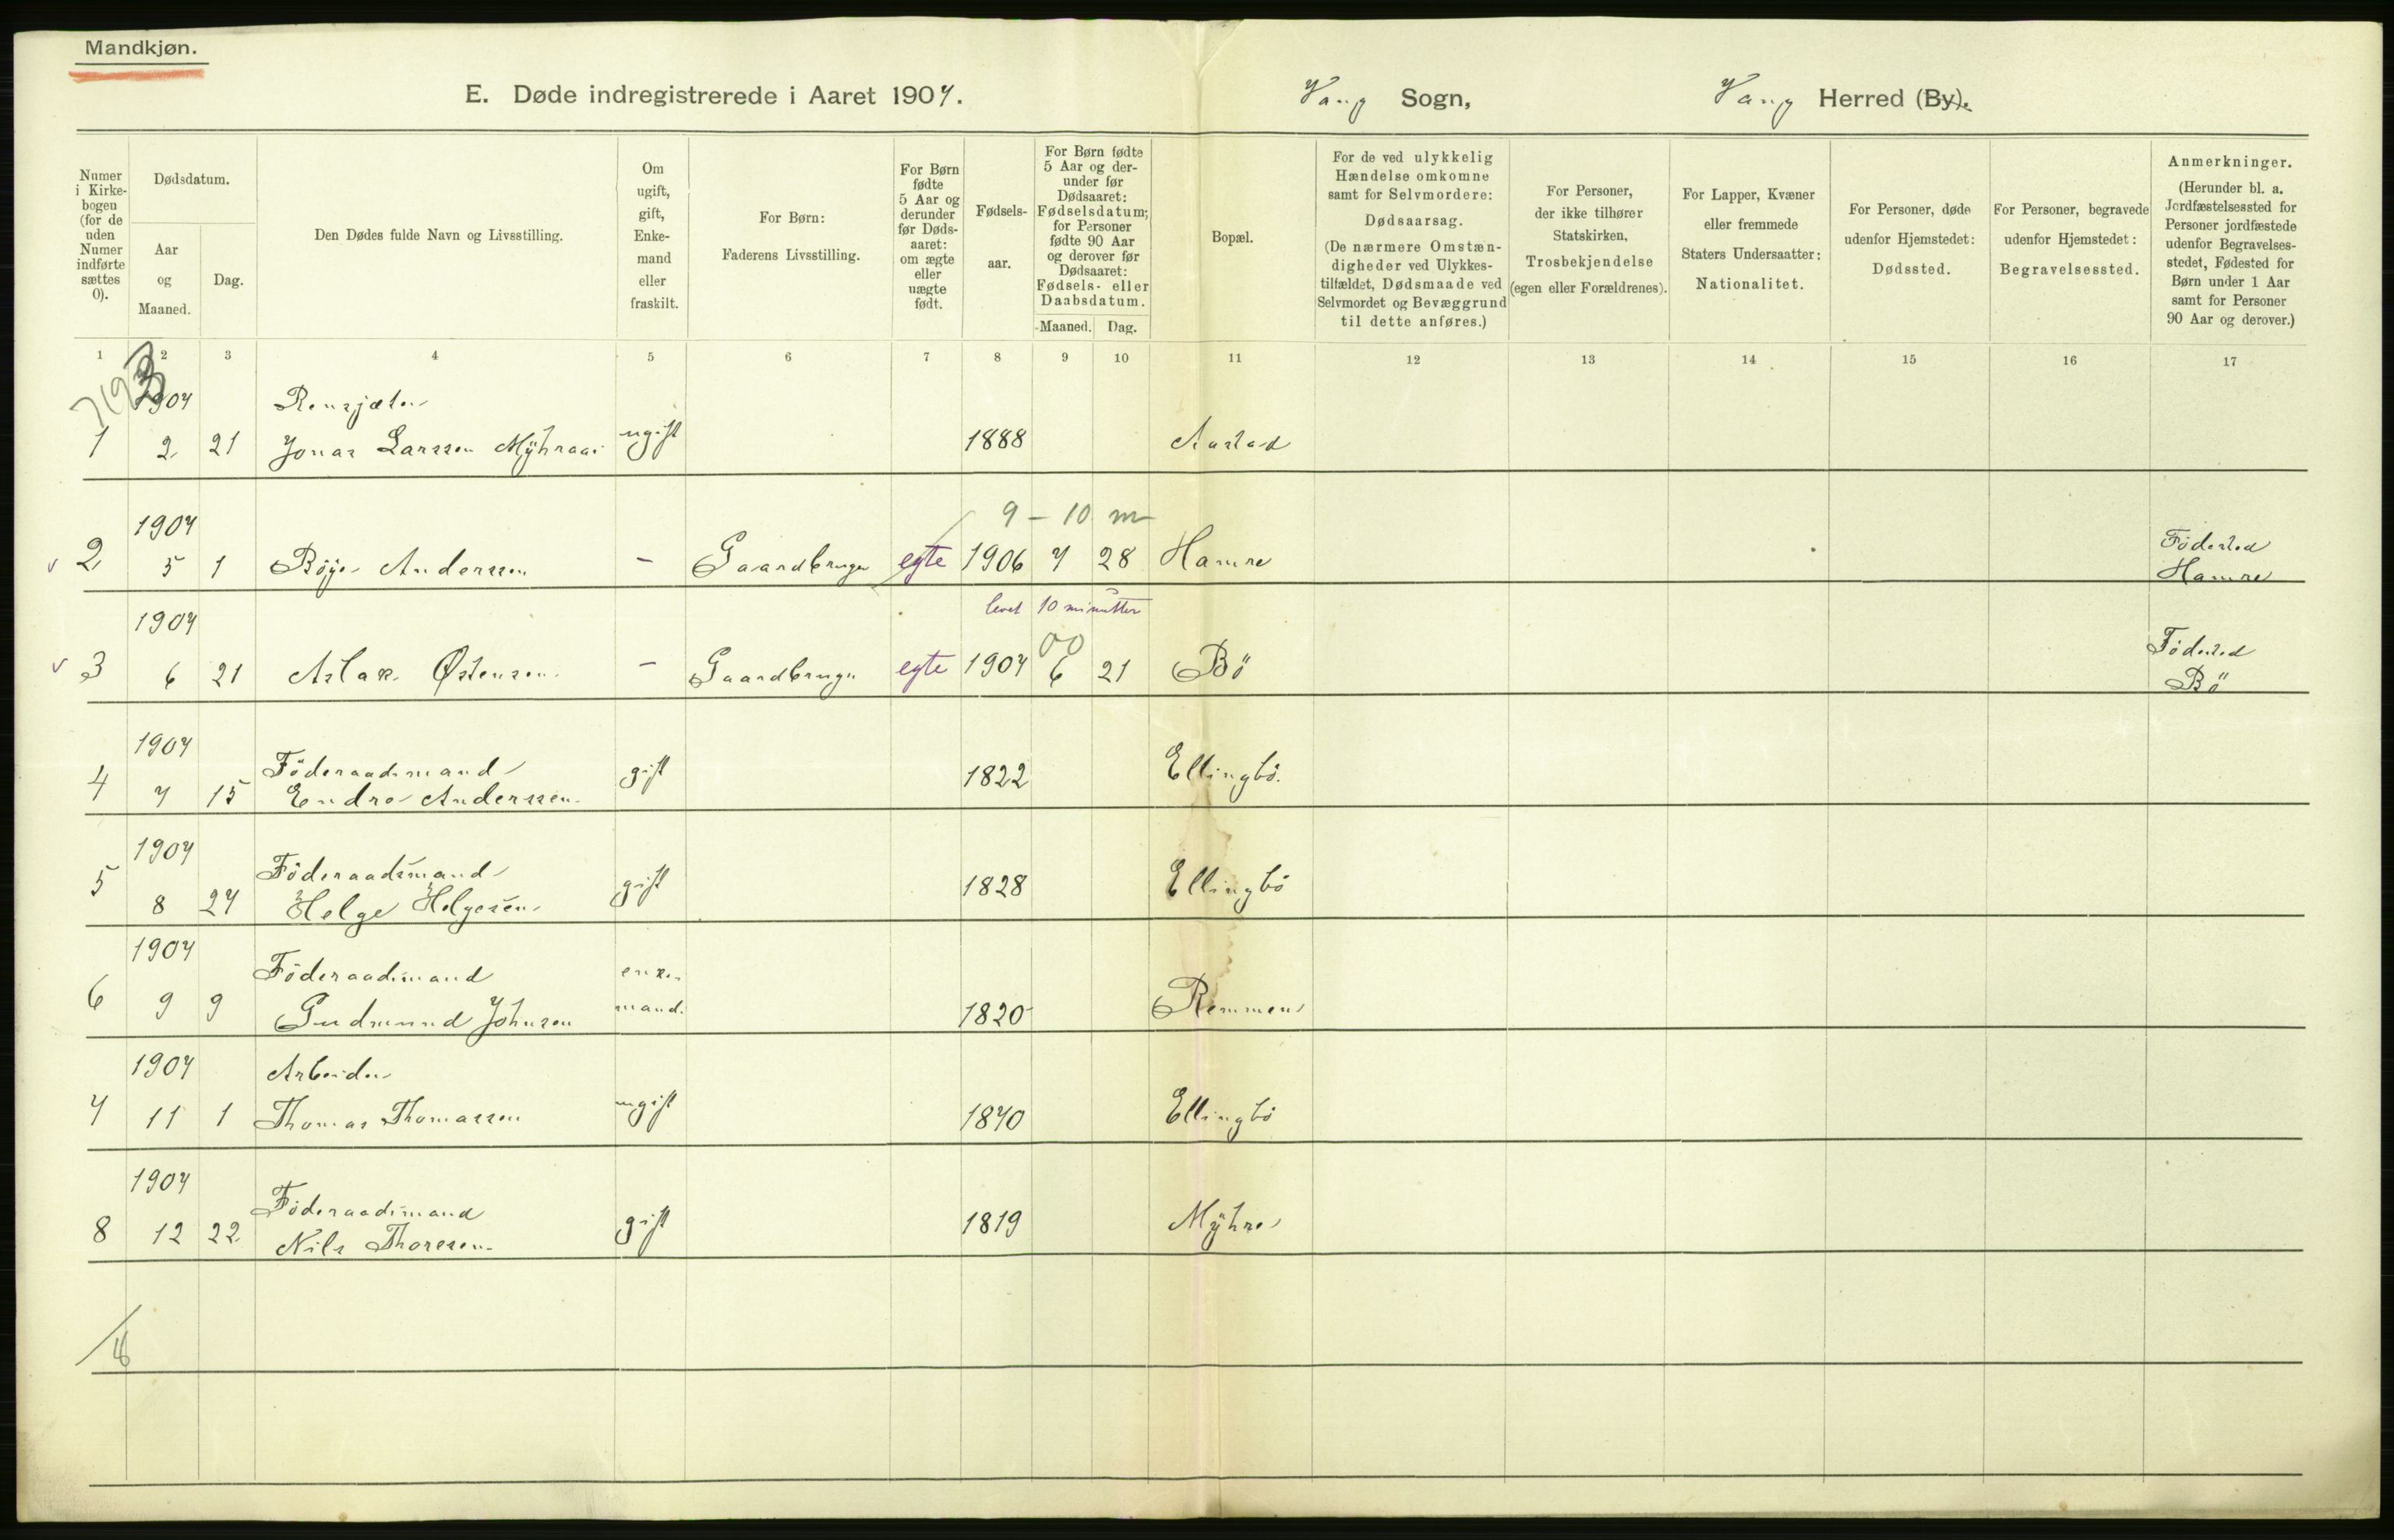 Mandkjøn.
E. Døde indregistrerede i Aaret 1907.
Vang Sogn, Vang Herred (By).
Numer i Kirke- bogen (for de uden Numer indførte sættes 0).
Dødsdatum.
Aar og Maaned.
Dag.
Den Dødes fulde Navn og Livsstilling.
Om ugift, gift, Enke- mand eller fraskilt.
For Børn: Faderens Livsstilling.
For Børn fødte 5 Aar og derunder før Døds- aaret: om ægte eller uægte født.
Fødsels- aar.
For Børn fødte 5 Aar og der- under før Dødsaaret: Fødselsdatum; for Personer fødte 90 Aar og derover før Dødsaaret: Fødsels- eller Daabsdatum.
Maaned. Dag.
Bopæl.
For de ved ulykkelig Hændelse omkomne samt for Selvmordere: Dødsaarsag. (De nærmere Omstæn- digheder ved Ulykkes- tilfældet, Dødsmaade ved Selvmordet og Bevæggrund til dette anføres.)
For Personer, der ikke tilhører Statskirken, Trosbekjendelse (egen eller Forældrenes).
For Lapper, Kvæner eller fremmede Staters Undersaatter: Nationalitet.
For Personer, døde udenfor Hjemstedet: Dødssted.
For Personer, begravede udenfor Hjemstedet: Begravelsessted.
Anmerkninger. (Herunder bl. a. Jordfæstelsessted for Personer jordfæstede udenfor Begravelses- stedet, Fødested for Børn under 1 Aar samt for Personer 90 Aar og derover.)
1 2 3 4 5 6 7 8 9 10 11 12 13 14 15 16 17
1907 Rensgjæter
1 2 21 Jonas Larssen Mÿhraas ugift 1888 Aastad
9 - 10 m
1907
2 5 1 Böye Anderssen - Gaardbruger egte 1906 7 28 Hamre Födested Hamre
levet 10 minutter
1907
3 6 21 Aslak Østensen - Gaardbruger egte 1907 6 21 Bö Födested Bö
1907 Föderaadsmand
4 7 15 Endre Anderssen gift 1822 Ellingbö.
1907 Föderaadsmand
5 8 27 Helge Helgesen gift 1828 Ellingbö
1907 Föderaadsmand enke-
6 9 9 Gudmund Johnsen mand. 1820 Remmen
1907 Arbeider
7 11 1 Thomas Thomassen ugift 1870 Ellingbö
1907 Föderaadsmand
8 12 22 Nils Thoresen gift 1819 Mÿhre